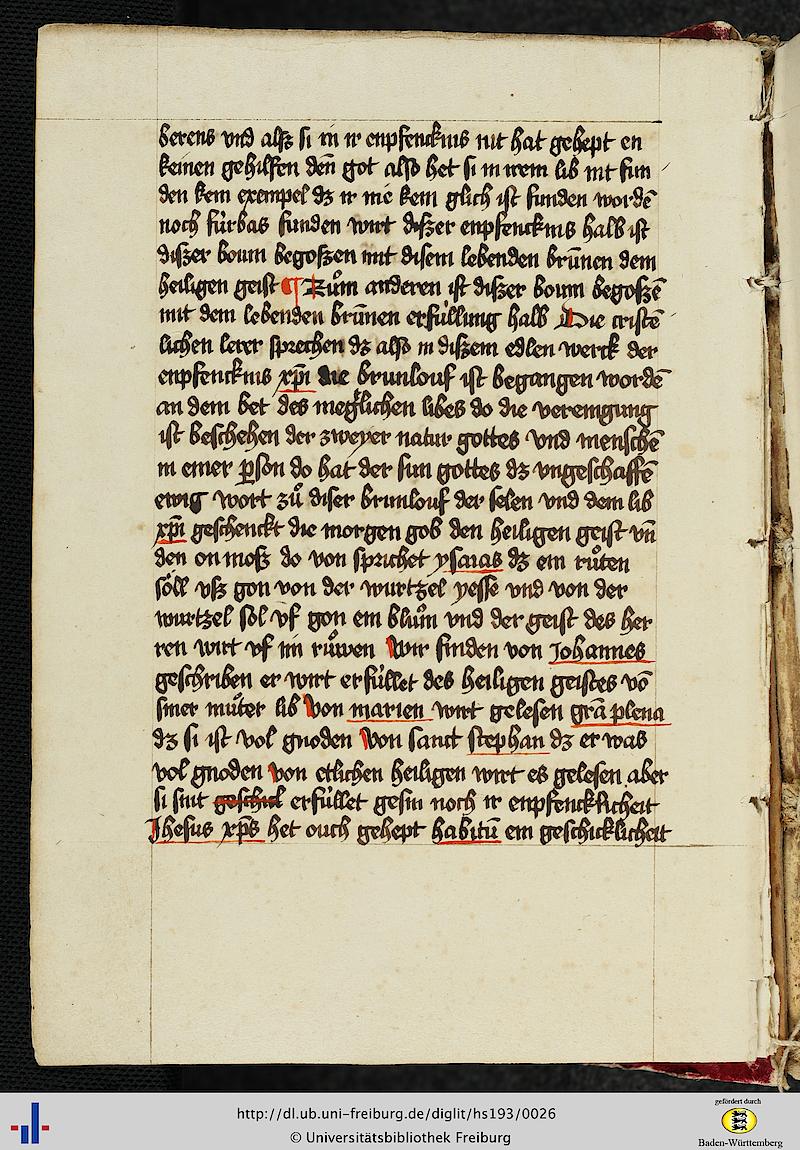 berens vnd alsz si in ir enpfencknis nit hat gehept en
keinen gehilfen den̄ got also het si in irem lib nit fun
den kein exempel dz ir nie kein glich ist funden wordē
noch fúrbas funden wirt diszer enpfencknis halb ist
diszer boum begoszen mit disem lebenden brūnen dem
heiligen geist ¶ Zům anderen ist diszer boum begoszē
mit dem lebenden brūnen erfúllung halb Die cristē
lichen lerer sprechen dz also in diszem edlen werck der
enpfencknis xp̄i die brunlouf ist begangen wordē
an dem bet des megtlichen libes do die vereinigung
ist beschehen der zweyer natur gottes vnd menschē
in einer ꝑson do hat der sun gottes dz vngeschaffē
ewig wort zů diser brunlouf der selen vnd dem lib
xp̄i geschenckt die morgen gob den heiligen geist vn̄
den on mosz do von sprichet ysaias dz ein růten
söll vsz gon von der wurtzel yesse vnd von der
wurtzel sol vf gon ein blům vnd der geist des her
ren wirt vf im růwen Wir finden von Johannes
geschriben er wirt erfúllet des heiligen geistes vō
siner můter lib Von marien wirt gelesen grā plena
dz si ist vol gnoden Von sanct stephan dz er was
vol gnoden von etlichen heiligen wirt es gelesen aber
si sint geschich erfúllet gesin noch ir enpfencklicheit
Jhesus xp̄s het ouch gehept habitū ein geschicklicheit
http://dl.ub.uni-freiburg.de/diglit/hs193/0026
© Universitätsbibliothek Freiburg
gefördert durch
Baden-Württemberg